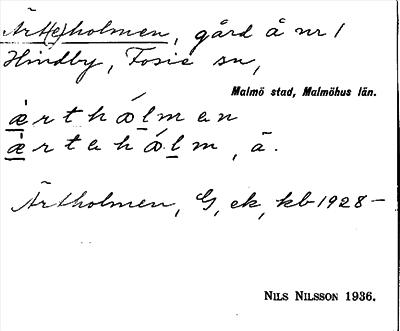 Ärt(e)holmen, gård å nr 1
Hindby, Fosie sn,
Malmö stad, Malmöhus län.
ærthólmen
ærtehólm, ä.
Ärtholmen, G, ek, kb 1928 –
NILS NILSSON 1936.